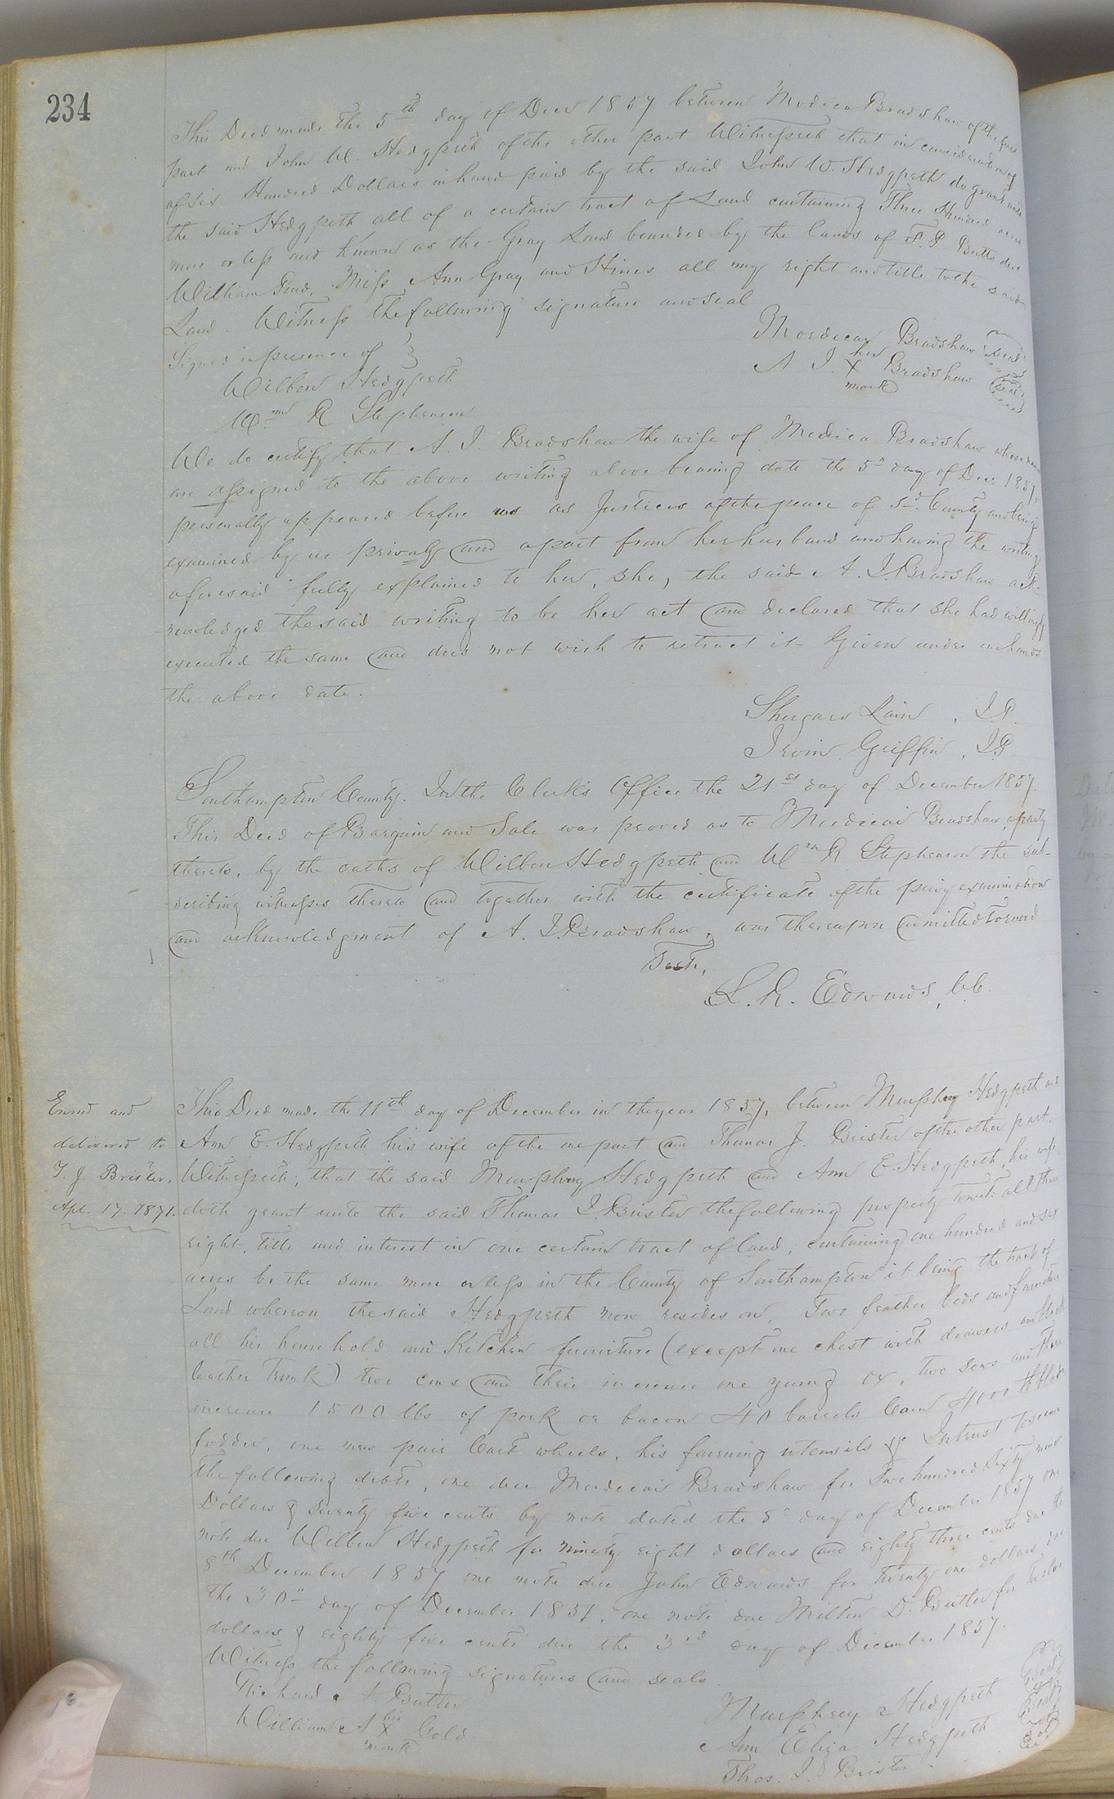 234
This Deed made the 5th day of Decr 1857 between Mordeca Bradshaw of the one
part and John W. Hedgpeth of the other part Witnesseth that in consideration
of six Hundred Dollars in hand paid by the said John W. Hedgpeth do grant unto
the said Hedgpeth all of a certain tract of Land containing Three Hundred acres
more or less and Known as the Gray Land bounded by the lands of Butts
William Miss Ann Gray and Hines all my right and title to the said
Land. Witness the following signature and seal
Signed in presence of
Wilbon Hedgpeth
Wm R Stephenson
Mordecai Bradshaw Seal
A J. her X mark Bradshaw Seal
We do certify that A. J. Bradshaw the wife of Mordica Bradshaw whose names
are assigned to the above writing above bearing date the 5th day of Decr 1857
personally appeared before us as Justices of the peace of sd. County and being
examined by us privaly and apart from her husband and having the writing
aforesaid fully explained to her, she, the said A. J. Bradshaw ack-
nowledged the said writing to be her act and declared that she had willingly
executed the same and does not wish to retract it Given under our hands
the above date.
Shugars Lain, J.P.
Irvin Griffin, J.P.
Southampton County. In the Clerk's Office the 21st day of December 1857
This Deed of Bargain and Sale was proved as to Mordicai Bradshaw, a party
thereto, by the oaths of Wilbon Hedgpeth and Wm R Stephenson the sub-
scribing witnesses thereto and together with the certificate of the privy examination
and acknowledgment of A. J. Bradshaw, was thereupon admitted to record
Teste,
L. R. Edwards, C.C.
Examd and
delivered to
T. J. Brister,
Apl. 17. 1871.
This Deed made the 11th day of December in the year 1857, between Murphrey Hedgpeth and
Ann E. Hedgpeth his wife of the one part and Thomas J. Brister of the other part.
Witnesseth; that the said Murphrey Hedgpeth and Ann E. Hedgpeth, his wife
doth grant unto the said Thomas J. Brister the following property towit: all their
right, title and interest in one certain tract of land, containing one hundred and six
acres be the same more or less in the County of Southampton it being the tract of
Land whereon the said Hedgpeth now resides on, Two feather beds and furniture
all his household and Kitchen furniture (except one chest with drawers and
leather Trunk) two cows and their increase one young ox, two sows and their
increase 1500 lbs of pork or bacon 40 barrels Corn 4000 lb
fodder, one new pair Cart wheels, his farming utensils &c Intrust to secure
the following debts, one due Mordecai Bradshaw for Two hundred Sixty
Dollars & Seventy five cents by note dated the 5th day of December 1857 one
note due Wilbon Hedgpeth for ninety eight dollars and eighty three cents due the
8th December 1857 one note due John Edwards for twenty one dollars due
the 30th day of December 1857, one note due Milton D. Butler for twelve
dollars & eighty five cents due the 3rd day of December 1857.
Witness the following signatures and seals.
Richard A Butler
William A his X mark Cobb
Murphrey Hedgpeth Seal
Ann Eliza Hedgpeth Seal
Thos. J. Brister Seal